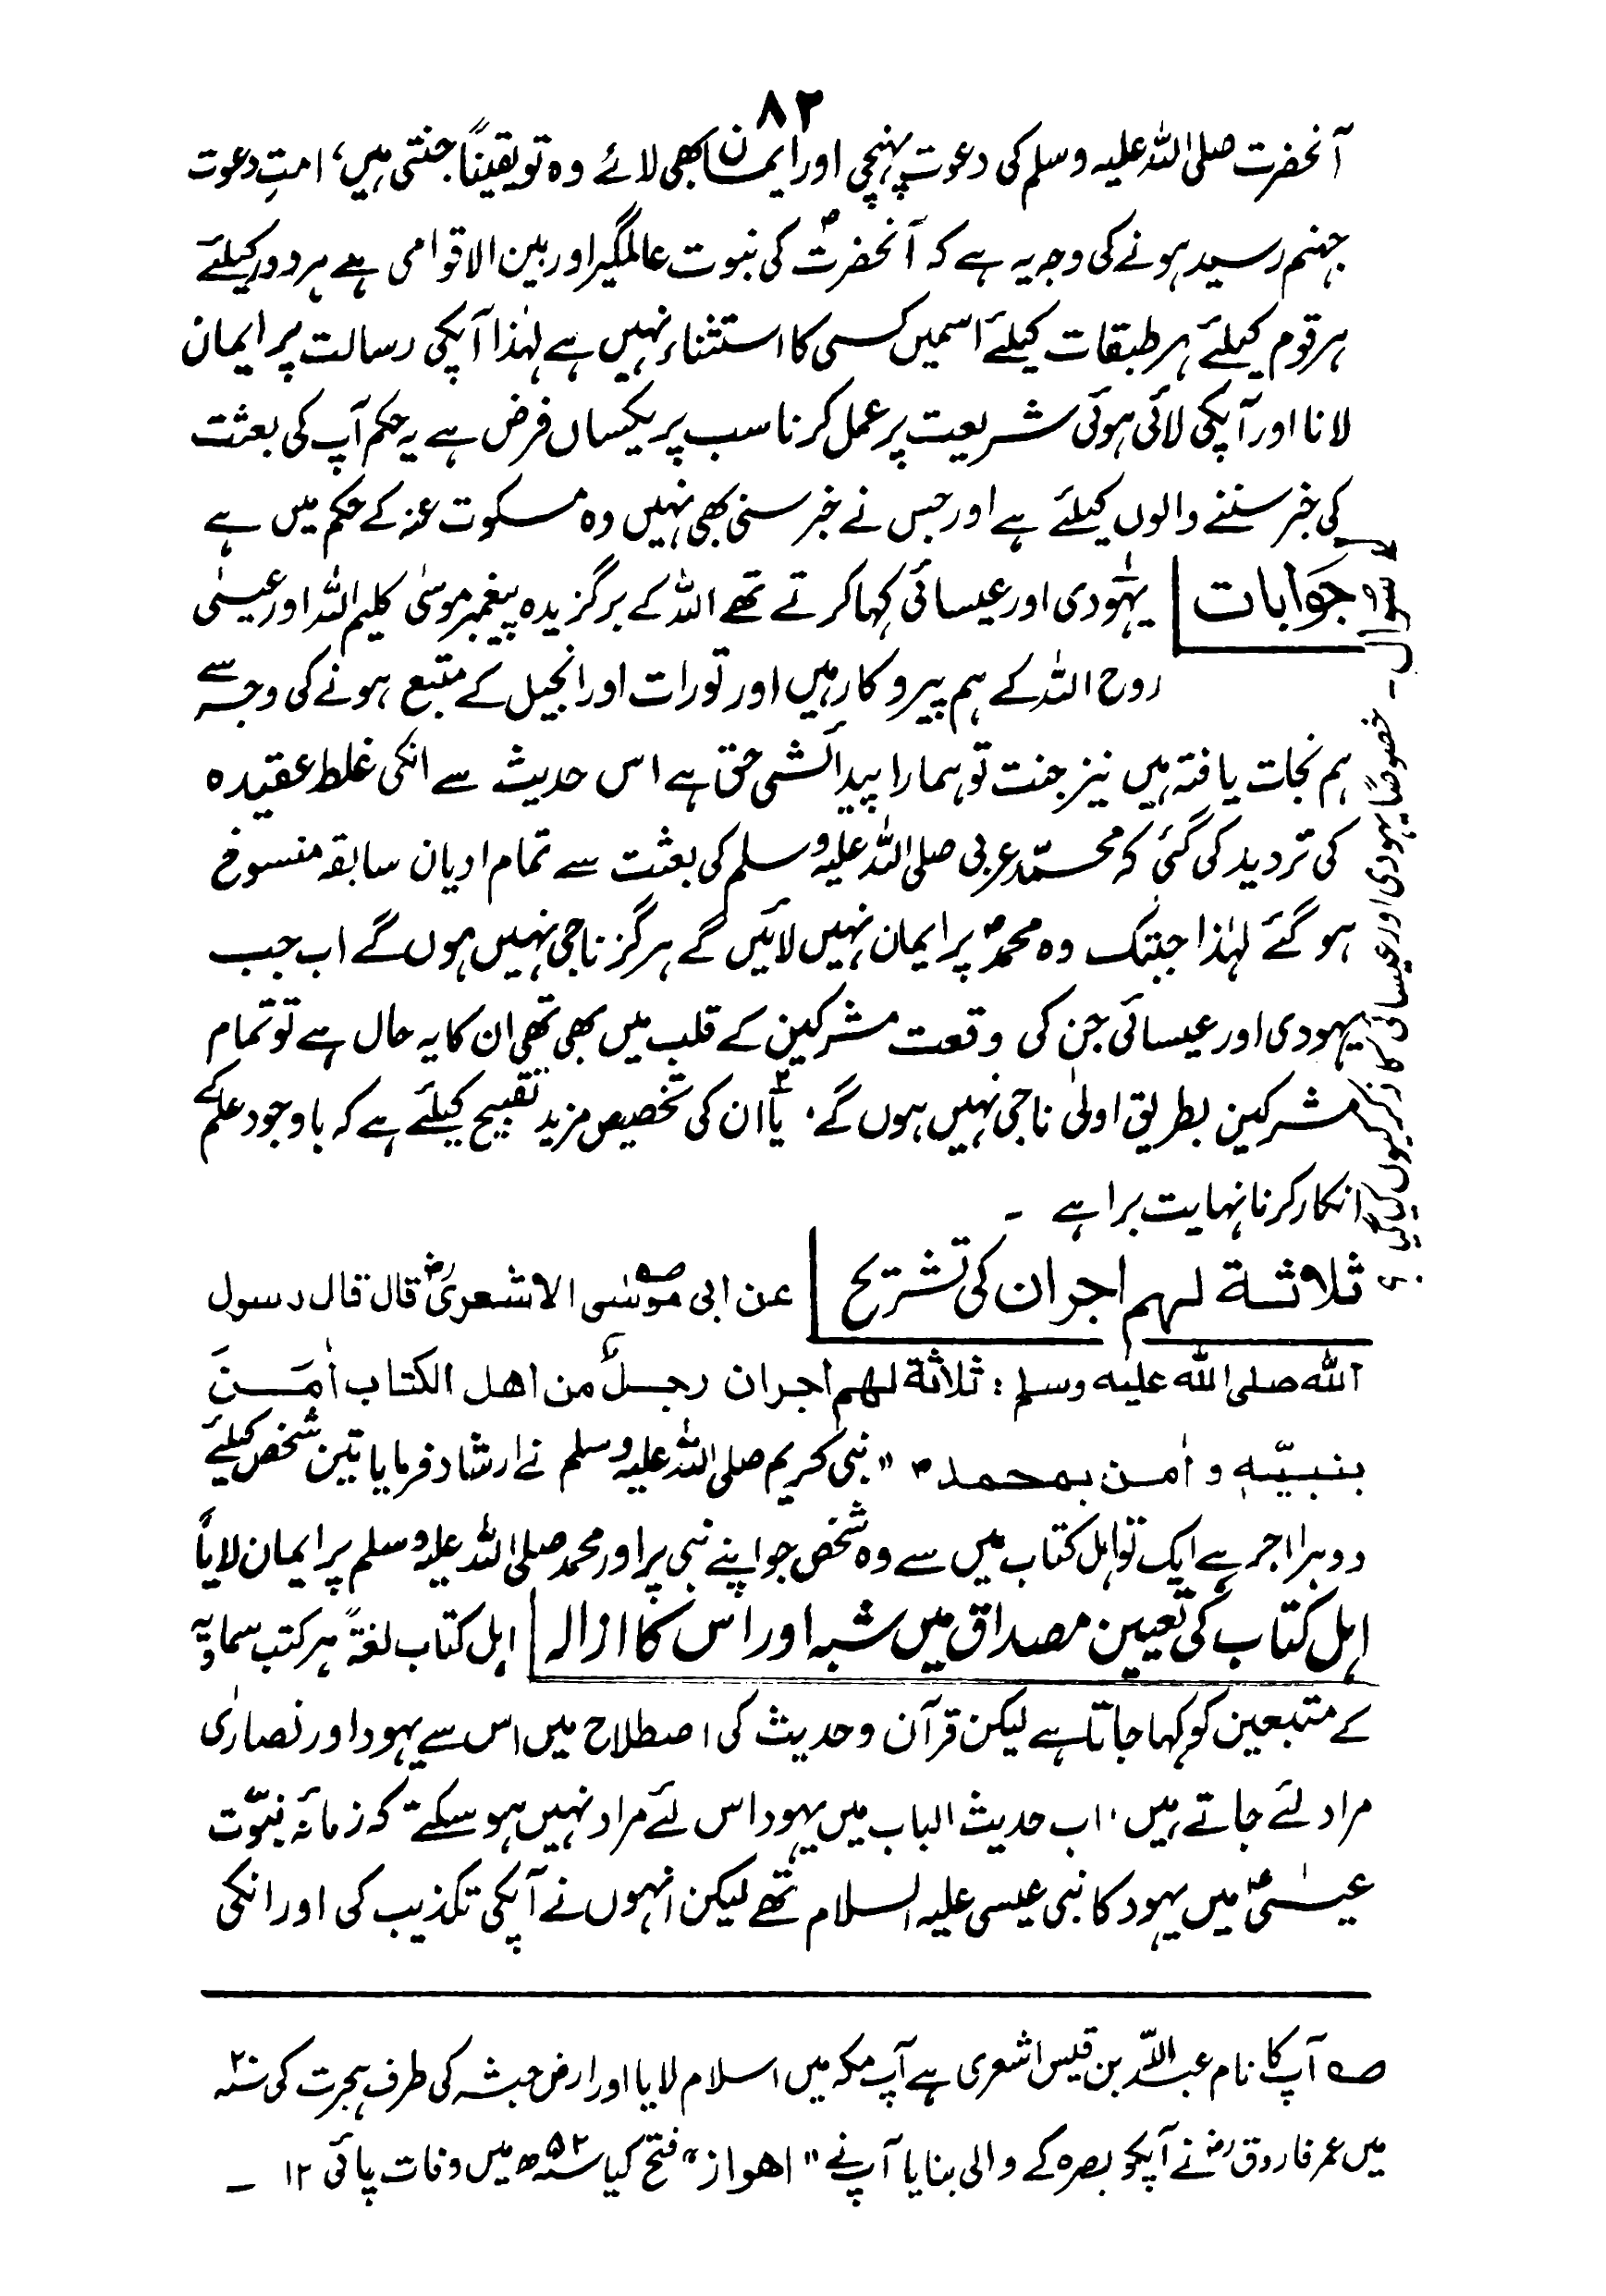 ۸۲
آنحضرت صلی اللہ علیہ وسلم کی دعوت پہنچی اور ایمان بھی لائے وہ تو یقیناً جنتی ہیں، امتِ دعوت
جہنم رسید ہونے کی وجہ یہ ہے کہ آنحضرتؐ کی نبوت عالمگیر اور بین الاقوامی ہے ہر دور کیلئے
ہر قوم کیلئے ہر طبقات کیلئے اسمیں کسی کا استثناء نہیں ہے لہٰذا آپکی رسالت پر ایمان
لانا اور آپکی لائی ہوئی شریعت پر عمل کرنا سب پر یکساں فرض ہے یہ حکم آپ کی بعثت
کی خبر سننے والوں کیلئے ہے اور جس نے خبر سنی بھی نہیں وہ مسکوت عنہ کے حکم میں ہے
سوال۔ خصوصًا یہودی اور عیسائی کا ذکر کیوں کیا گیا؟
جوابات یہودی اور عیسائی کہا کرتے تھے اللہ کے برگزیدہ پیغمبر موسیٰ کلیم اللہ اور عیسیٰ
روح اللہ کے ہم پیروکار ہیں اور تورات اور انجیل کے متبع ہونے کی وجہ سے
ہم نجات یافتہ ہیں نیز جنت تو ہمارا پیدائشی حق ہے اس حدیث سے انکی غلط عقیدہ
کی تردید کی گئی کہ محمّد عربی صلی اللہ علیہ وسلم کی بعثت سے تمام ادیان سابقہ منسوخ
ہو گئے لہٰذا جبتک وہ محمدؐ پر ایمان نہیں لائیں گے ہرگز ناجی نہیں ہوں گے اب جب
یہودی اور عیسائی جن کی وقعت مشرکین کے قلب میں بھی تھی ان کا یہ حال ہے تو تمام
مشرکین بطریق اولیٰ ناجی نہیں ہوں گے، ۲ یا ان کی تخصیص مزید تقبیح کیلئے ہے کہ باوجود علم کے
انکار کرنا نہایت برا ہے ۔
ثلاثة لہم اجران کی تشریح عن ابی موسٰی الاشعریؓ قال قال رسول
اللہ صلی اللہ علیہ وسلم : ثلاثة لھم اجران رجلٌ من اھل الکتاب اٰمَنَ
بنبیّہٖ و اٰمن بمحمدؐ "نبی کریم صلی اللہ علیہ وسلم نے ارشاد فرمایا تین شخص کیلئے
دوہرا اجر ہے ایک تو اہل کتاب میں سے وہ شخص جو اپنے نبی پر اور محمد صلی اللہ علیہ وسلم پر ایمان لایا"
اہل کتاب کی تعیین مصداق میں شبہ اور اس کا ازالہ اہل کتاب لغۃً ہر کتب سماویہ
کے متبعین کو کہا جاتا ہے لیکن قرآن و حدیث کی اصطلاح میں اس سے یہود اور نصارٰی
مراد لئے جاتے ہیں، اب حدیث الباب میں یہود اس لئے مراد نہیں ہو سکتے کہ زمانۂ نبوّت
عیسیٰؑ میں یہود کا نبی عیسی علیہ السلام تھے لیکن انہوں نے آپکی تکذیب کی اور انکی
صہ آپ کا نام عبداللہ بن قیس اشعری ہے آپ مکہ میں اسلام لایا اور ارض حبشہ کی طرف ہجرت کی ۲۰ سنہ
میں عمر فاروقؓ نے آپکو بصرہ کے والی بنایا آپنے "اھواز" فتح کیا سنہ ۵۲ھ میں وفات پائی ۱۲ ۔